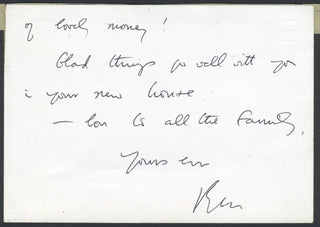 of lovely money!
Glad things go well with you
in your new house.
— love to all the family,
Yours ever
Ben